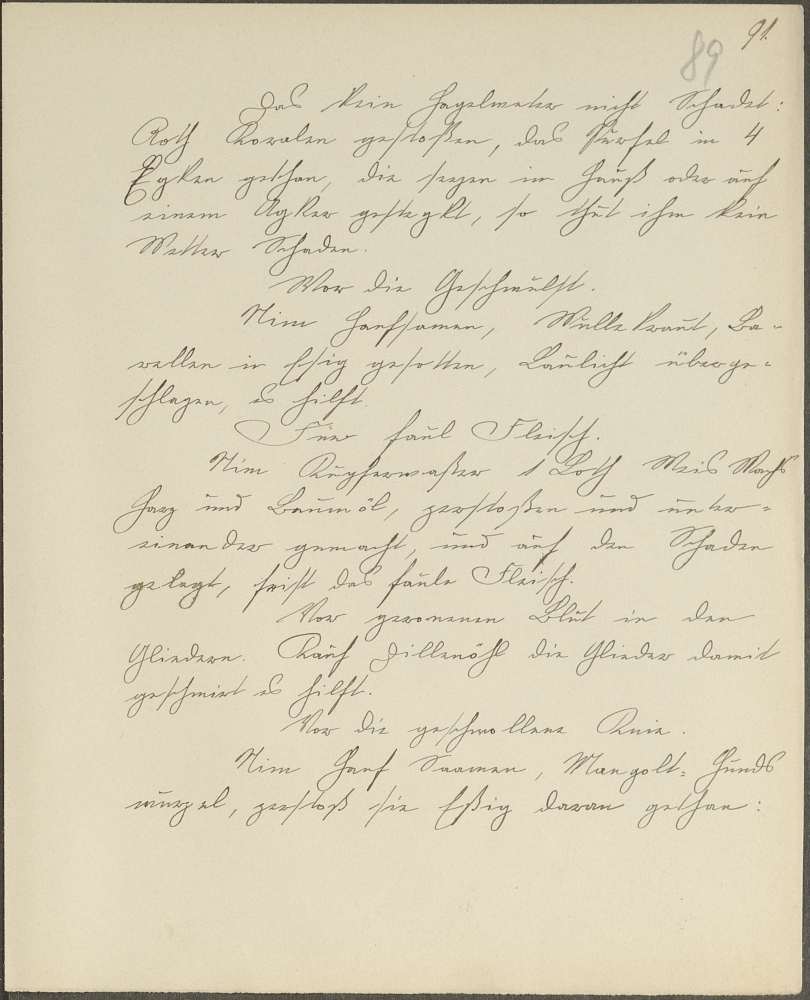 91.
89
Das kein Hagelweter nicht Schadet:
Roth Koralen gestoßen, das Pürfel in 4
Egken gethan, die seegen im Hauß oder auf
einem Agker gestegkt, so thut ihm kein
Wetter Schaden.
Vor die Geschwulst.
Nim Hanfsamen, Wulle kraut, Ba-
rellen in Esig gesotten, Laulicht überge-
schlagen, es hilft.
Für faul Fleisch.
Nim Kupferwaßer 1 Loth Weis Wachs
Harz und Baumöl, zerstoßen und unter-
einander gemacht, und auf den Schaden
gelegt, frist das faule Fleisch.
Vor geronenen Blut in den
Gliedern. Kauf Dillenöhl die Glieder damit
geschmirt es hilft.
Vor die geschwollene Knie.
Nim Hanf Saamen, Mangolt- Hunds
wurzel, zerstoß sie Eßig daran gethan: